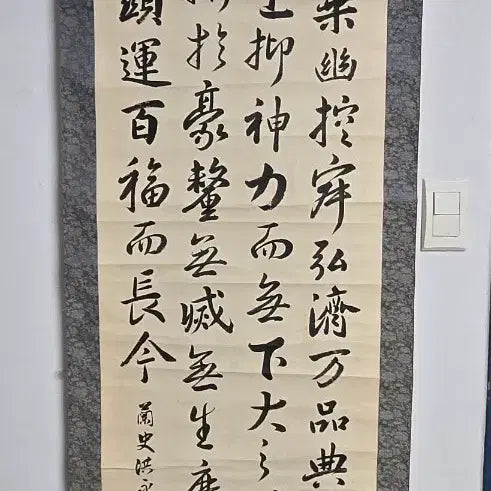 乘幽控寂弘濟万品典
上抑神力而無下大之
於豪釐無滅無生歷
顯運百福而長今
蘭史洪